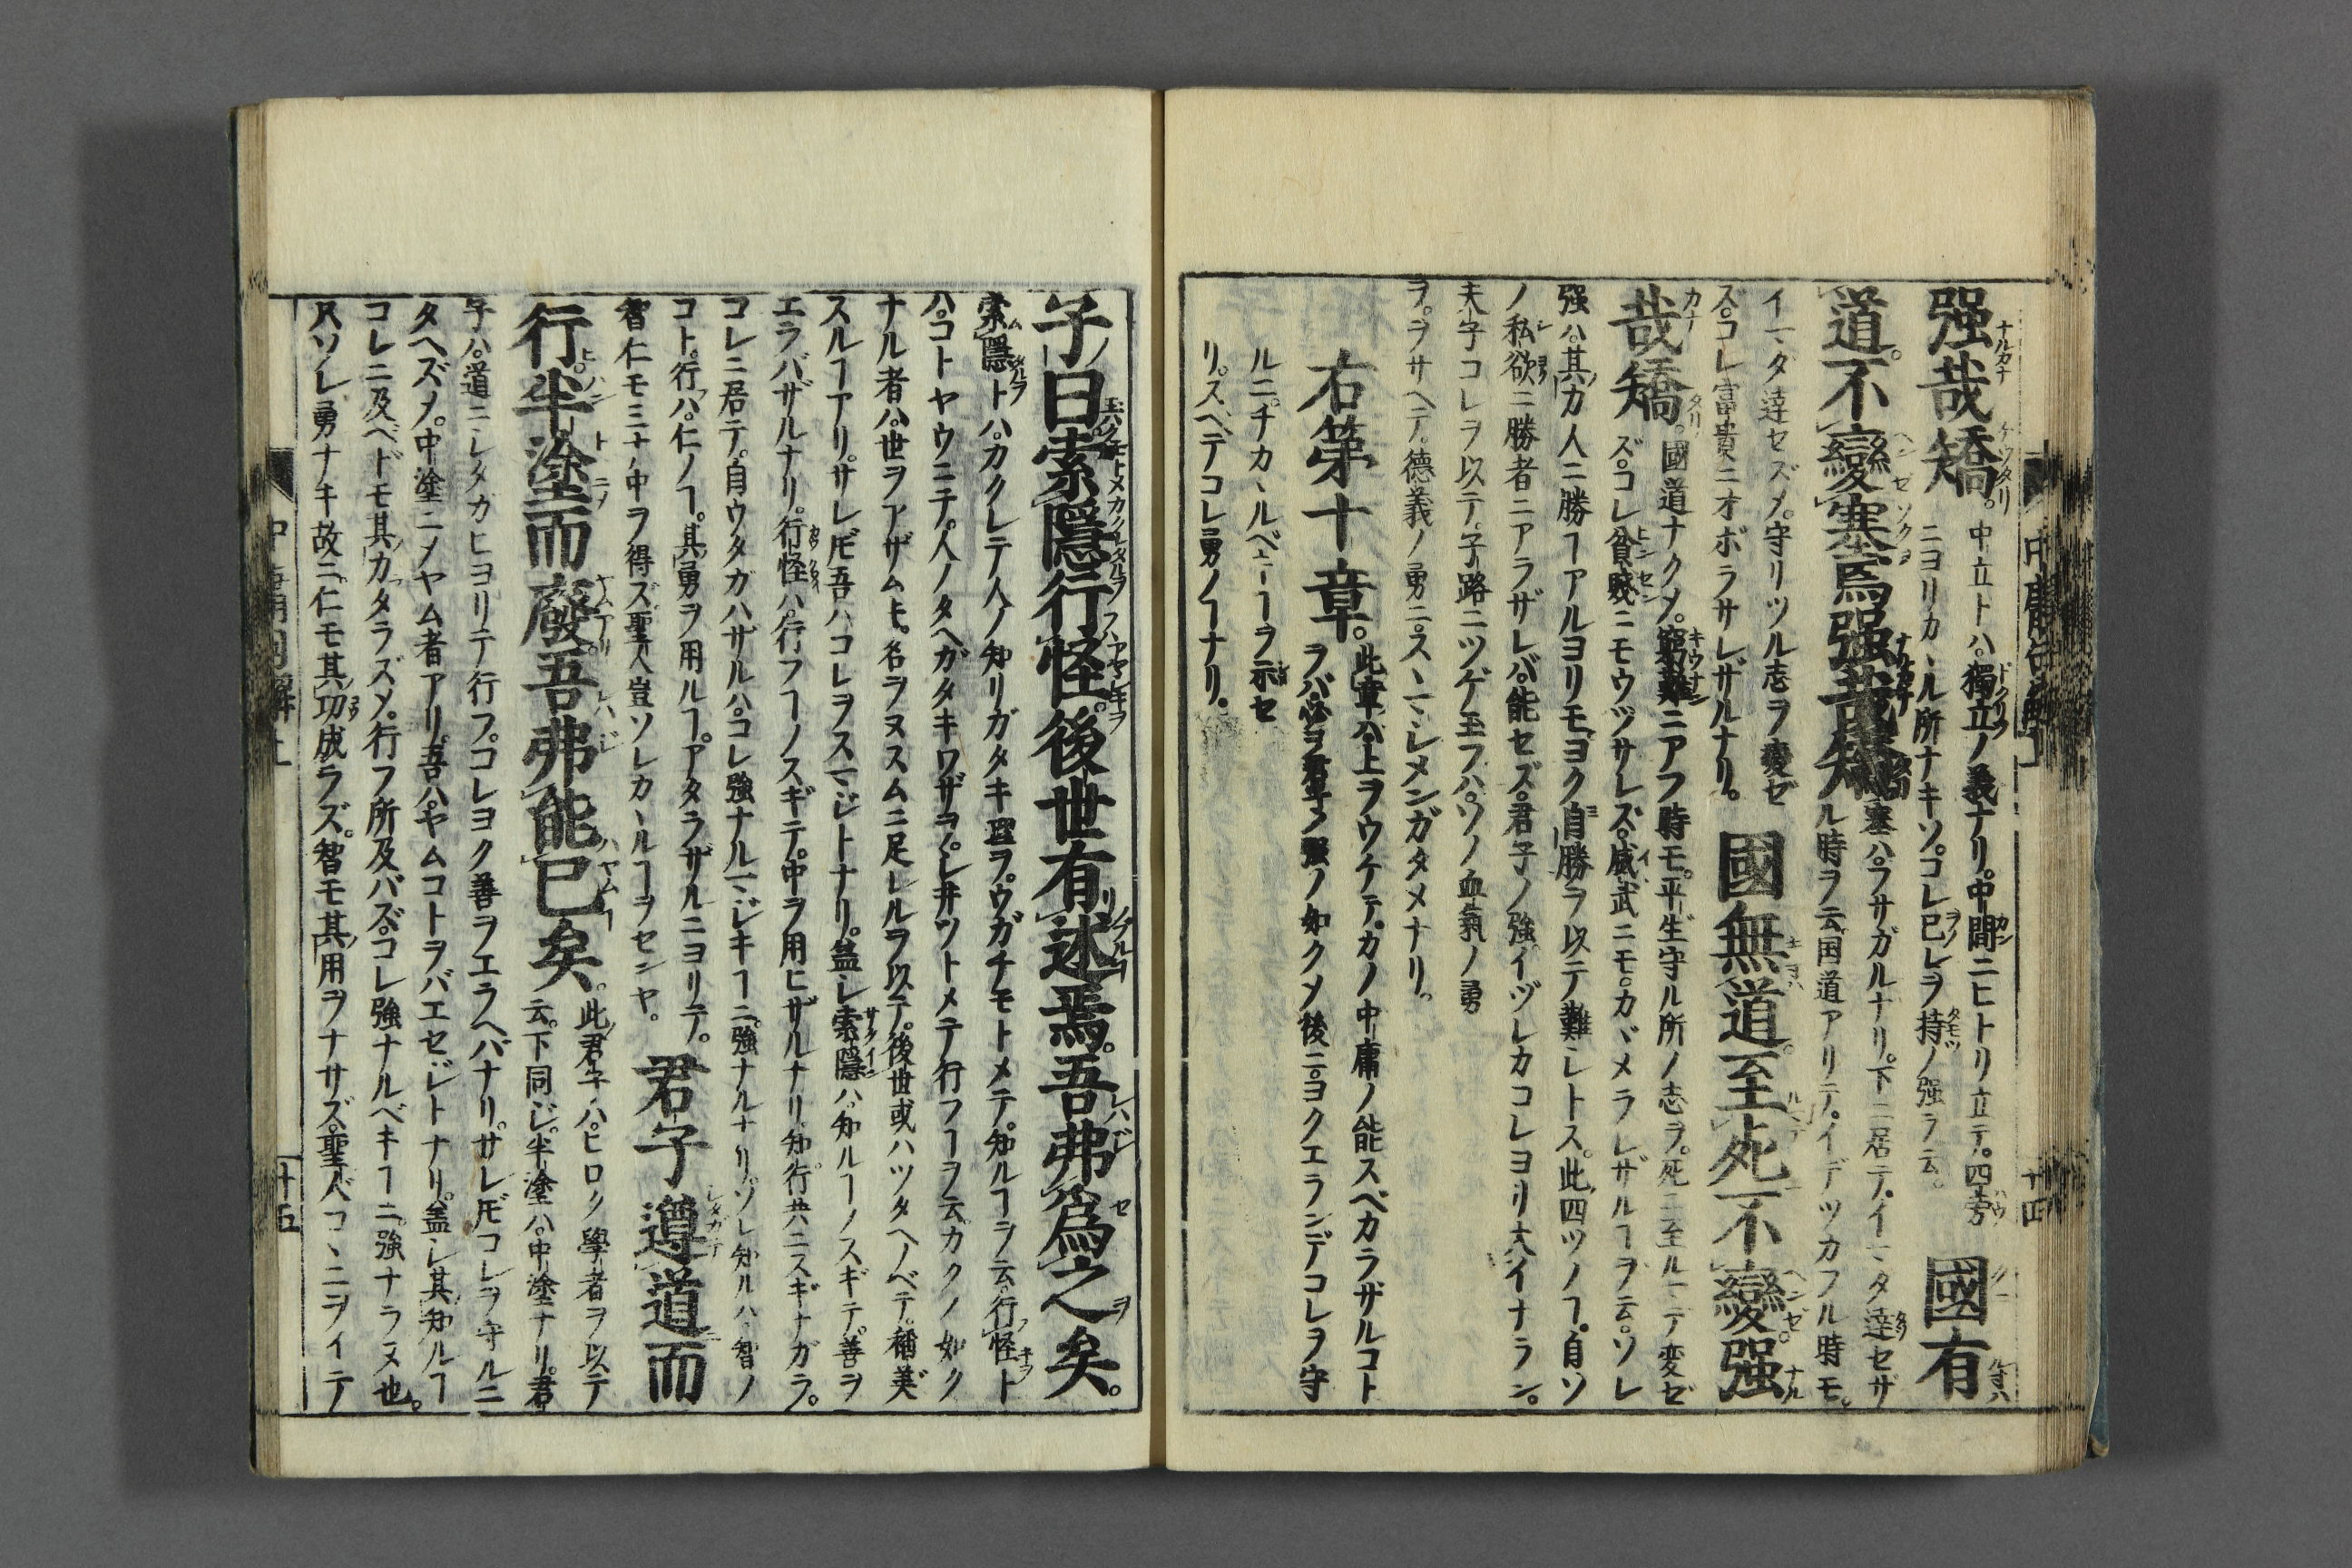 强哉矯。中立トハ。獨立ノ義ナリ。中間ニヒトリ立テ。四旁
ニヨリカヽル所ナキソ。コレ已レヲ持ノ强ヲ云。國有
道。不變塞焉。强哉矯。塞ハ。フサガルナリ。下ニ居テ。イマタ達セザ
ル時ヲ云。国道アリテ。イデツカフル時モ。
イマダ達セズメ。守リツル志ヲ変ゼ
ズ。コレ富貴ニオボラサレザルナリ。國無道。至死不變。强
哉矯。國道ナクメ。窮難ニアフ時モ。平生守ル所ノ志ヲ。死ニ至ルマデ変ゼ
ズ。コレ貧賤ニモウツサレズ。威武ニモ。カヾメラレザルヿヲ云。ソレ
强ハ。其力人ニ勝ヿアルヨリモ。ヨク自勝ヲ以テ難シトス。此四ツノヿ。自ソ
ノ私欲ニ勝者ニアラザレバ。能セズ。君子ノ強イヅレカコレヨリ大イナラン。
夫子コレヲ以テ。子路ニツゲ玉フハ。ソノ血氣ノ勇
ヲ。ヲサヘテ。德義ノ勇ニ。スヽマシメンガタメナリ。
右第十章。此章ハ上ヲウケテ。カノ中庸ノ能スベカラザルコト
ラバ。必ヲ君子ノ强ノ如クメ後ニ。ヨクエランデコレヲ守
ルニ。チカヽルベキヿヲ示セ
リ。スベテコレ勇ノヿナリ。
子曰。索隱行怪。後世有述焉。吾弗爲之矣。
索隱トハ。カクレテ人ノ知リガタキ理ヲ。ウガチモトメテ。知ルヿヲ云。行怪ト
ハ。コトヤウニテ。人ノタヘガタキワザヲ。シ井ツトメテ行フヿヲ云。カクノ如ク
ナル者ハ。世ヲアザムキ。名ヲヌスムニ足レルヲ以テ。後世或ハツタヘノベテ。稱美
スルヿアリ。サレ𪜈吾ハコレヲスマジトナリ。蓋シ索隱ハ。知ルヿノスギテ。善ヲ
エラバザルナリ。行怪ハ。行フヿノスギテ。中ヲ用ヒザルナリ。知行共ニスギナガラ。
コレニ居テ。自ウタガハザルハ。コレ強ナルマジキヿニ。強ナルナリ。ソレ知ルハ智ノ
コト。行ハ仁ノヿ。其勇ヲ用ルヿ。アタラザルニヨリテ。
智仁モミナ中ヲ得ズ。聖人豈ソレカヽルヿヲセンヤ。君子遵道而
行。半塗而廢。吾弗能已矣。此君子ハ。ヒロク學者ヲ以テ
云。下同ジ。半塗ハ。中塗ナリ。君
子ハ。道ニシタカヒヨリテ行フ。コレヨク善ヲエラヘバナリ。サレ𪜈コレヲ守ルニ
タヘズメ。中塗ニメヤム者アリ。吾ハヤムコトヲバエセジトナリ。蓋シ其知ルヿ
コレニ及ベドモ其力タラズメ。行フ所及バズ。コレ強ナルベキヿニ。強ナラヌ也。
只ソレ勇ナキ故ニ。仁モ其功成ラズ。智モ其用ヲナサズ。聖人コヽニヲイテ
十五